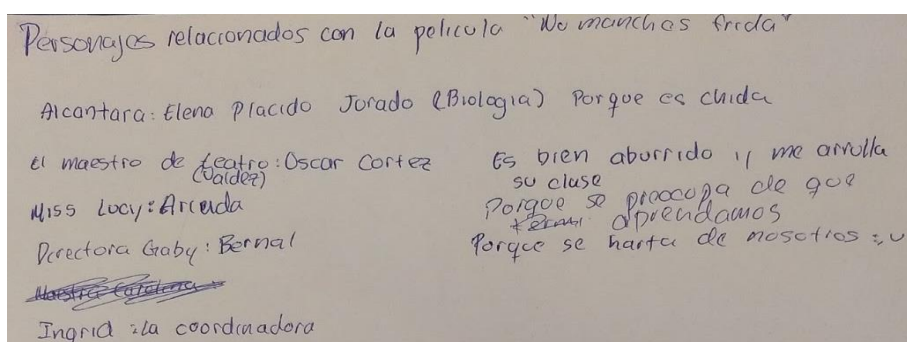 Personajes relacionados con la pelicula "No manches frida"
Alcantara: Elena Placido Jurado (Biologia) Porque es chida
El maestro de teatro: Oscar Cortez Es bien aburrido y me arrulla
(Valdez) su clase
Miss Lucy: Arceuda Porque se preocupa de que
aprendamos
Directora Gaby: Bernal Porque se harta de nosotros :v
Ingrid :la coordinadora